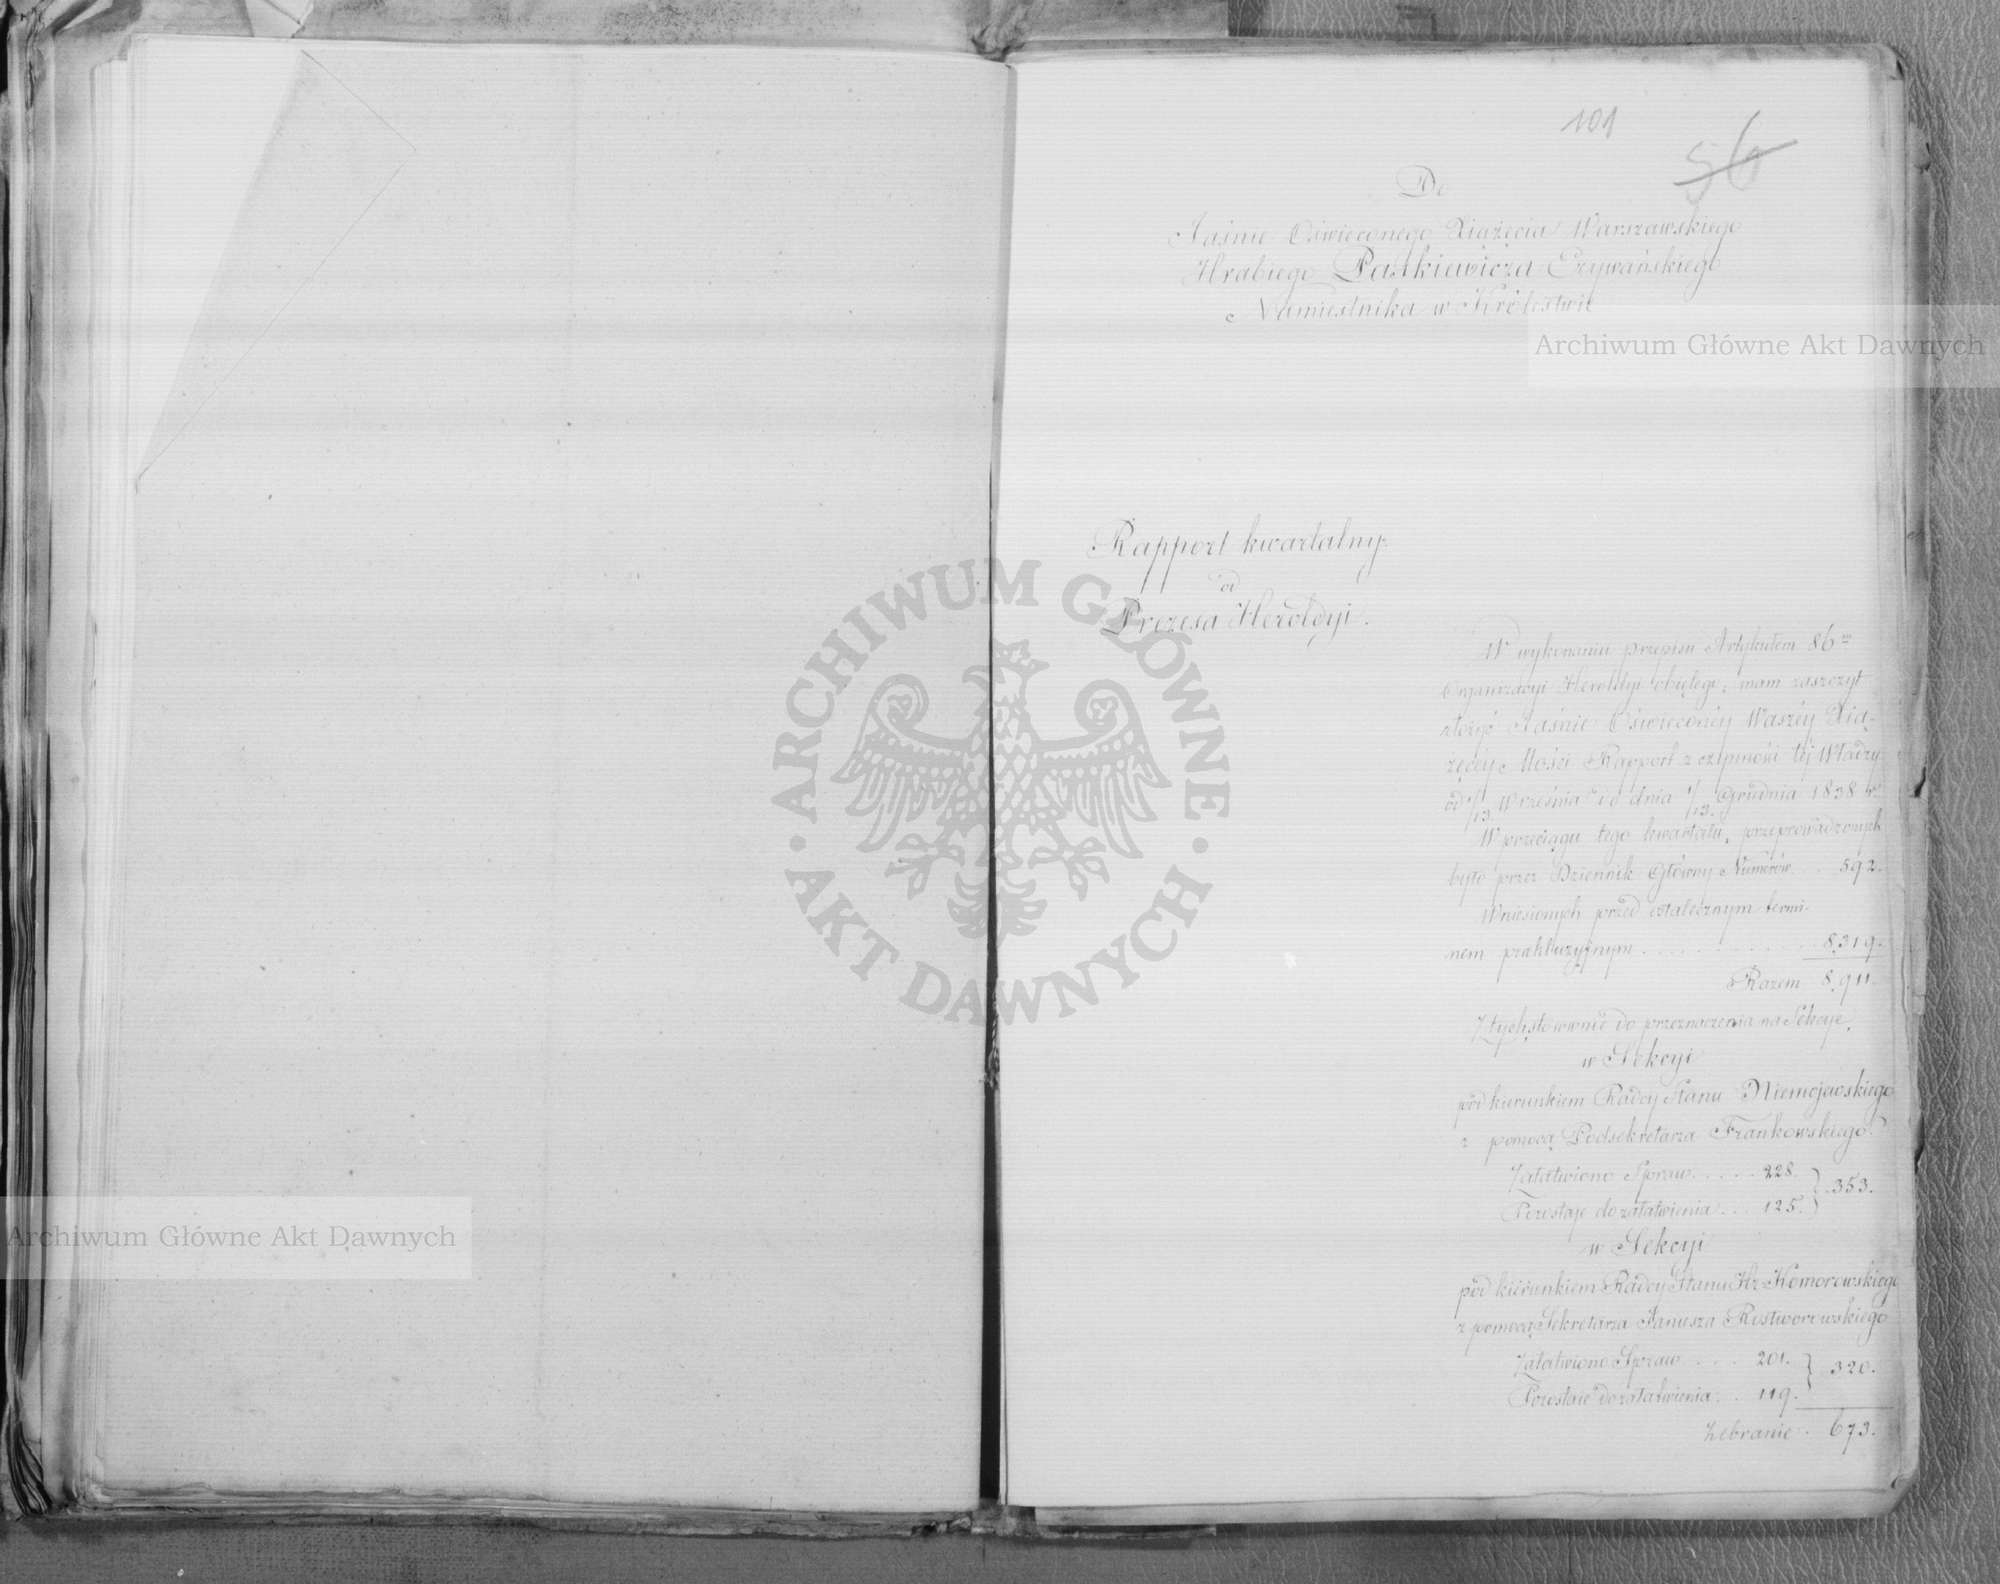 101
56
Do
Jaśnie Oświeconego Xiążęcia Warszawskiego
Hrabiego Paskiewicza Erywańskiego
Namiestnika w Królestwie
Archiwum Główne Akt Dawnych
Rapport kwartalny
od
Prezesa Heroldyi.
ARCHIWUM GŁÓWNE
AKT DAWNYCH
W wykonaniu przepisu Artykułem 86m
Organizacyi Heroldyi objętego, mam zaszczyt
złożyć Jaśnie Oświeconéy Waszéy Xią-
żęcéy Mości Rapport z czynności téj Władzy
od 1/13. Września do dnia 1/13. Grudnia 1838 r.
W przeciągu tego kwartału, przeprowadzonych
było przez Dziennik Główny Numerów 592.
Wniesionych przed ostatecznym termi-
nem prekluzyjnym 8,319.
Razem 8,911.
Z tych stosownie do przeznaczenia na Sekcye,
w Sekcyi
pod kierunkiem Radcy Stanu Niemojewskiego
z pomocą Podsekretarza Frankowskiego.
Załatwiono Spraw 228.
353.
Pozostaje do załatwienia 125.
Archiwum Główne Akt Dawnych
w Sekcyi
pod kierunkiem Radcy Stanu Hr. Komorowskiego
z pomocą Sekretarza Janusza Rostworowskiego
Załatwiono Spraw 201.
320.
Pozostaie do załatwienia 119.
Zebranie 673.